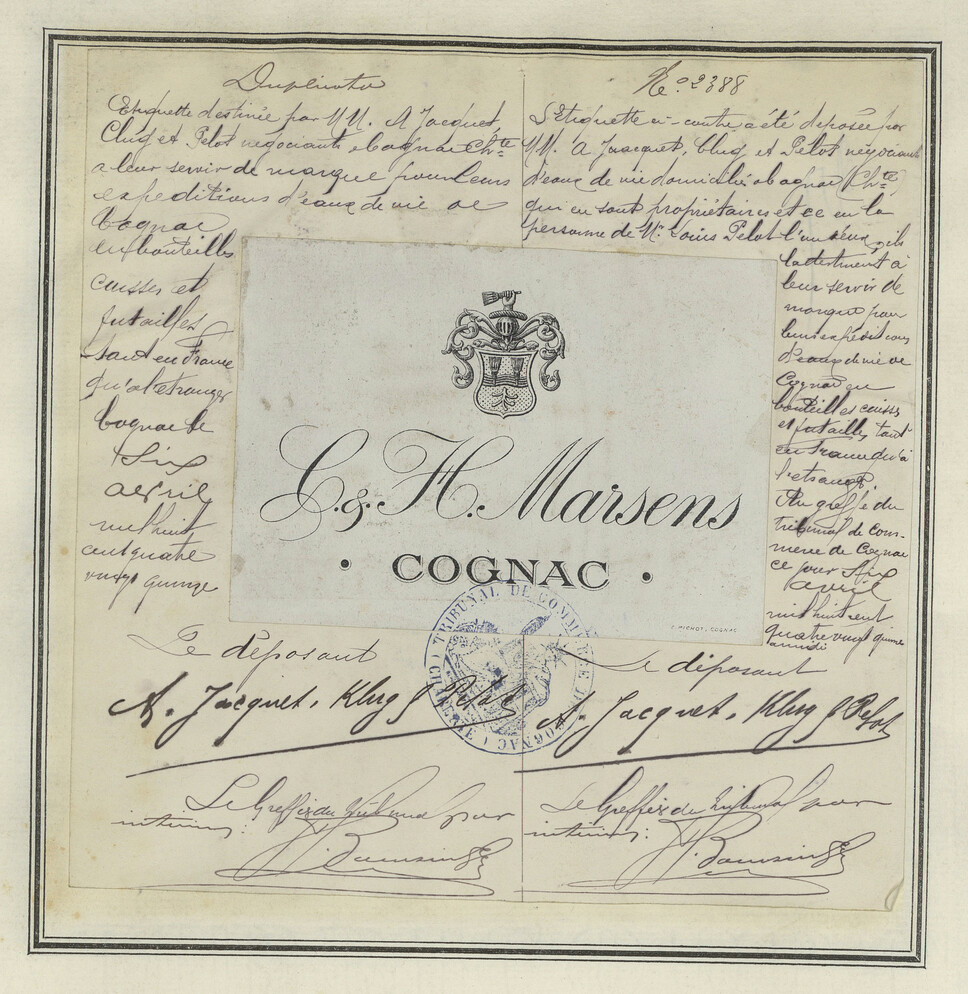 Duplicata
Etiquette destinée par MM. A Jacquet,
Klug et Pelot négociants à Cognac Chte
a leur servir de marque pour leurs
expeditions d'eaux de vie de
Cognac
en bouteilles
caisses et
futailles
tant en France
qu'a l'etranger
Cognac le
Six
avril
mil huit
cent quatre
vingt quinze
Le déposant
A. Jacquet, Klug & Pelot
Le Greffier du Tribunal par
interim:
No. 2388
L'Etiquette ci-contre a été deposée par
MM. A Jacquet, Klug et Pelot négociants
d'eaux de vie domiciliés a Cognac (Chte
qui en sont propriétaires et ce en la
personne de Mr. Louis Pelot l'un d'eux, ils
la destinent à
leur servir de
marque pour
leurs expéditions
d'eaux de vie de
Cognac en
bouteilles caisses
et futailles tant
en France qu'à
l'etranger.
Au greffe du
tribunal de Com-
merce de Cognac
ce jour Six
avril
mil huit cent
quatre vingt quinze
Le déposant
A. Jacquet, Klug & Pelot
Le Greffier du Tribunal par
interim:
C. & H. Marsens
• COGNAC •
PICHOT, COGNAC
TRIBUNAL DE COMMERCE DE COGNAC (CHARENTE)